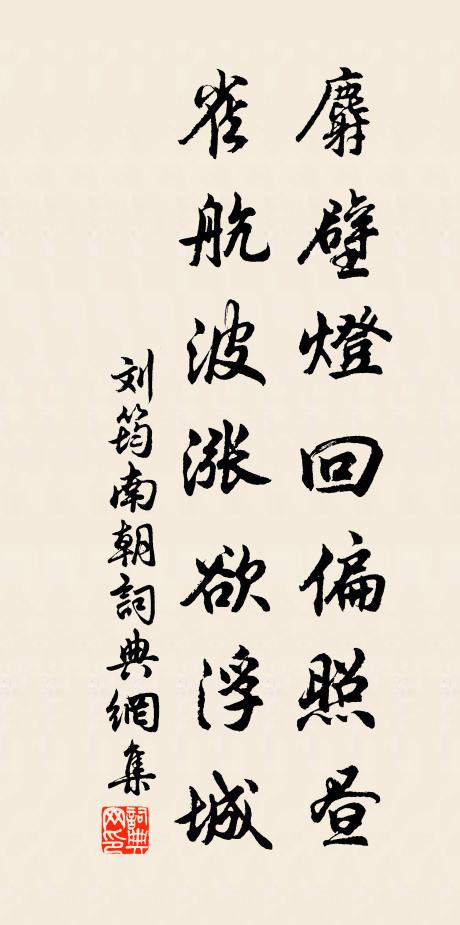 麝壁燈回偏照昼
雀航波涨欲浮城
刘筠南朝詞典網集
詞典网印